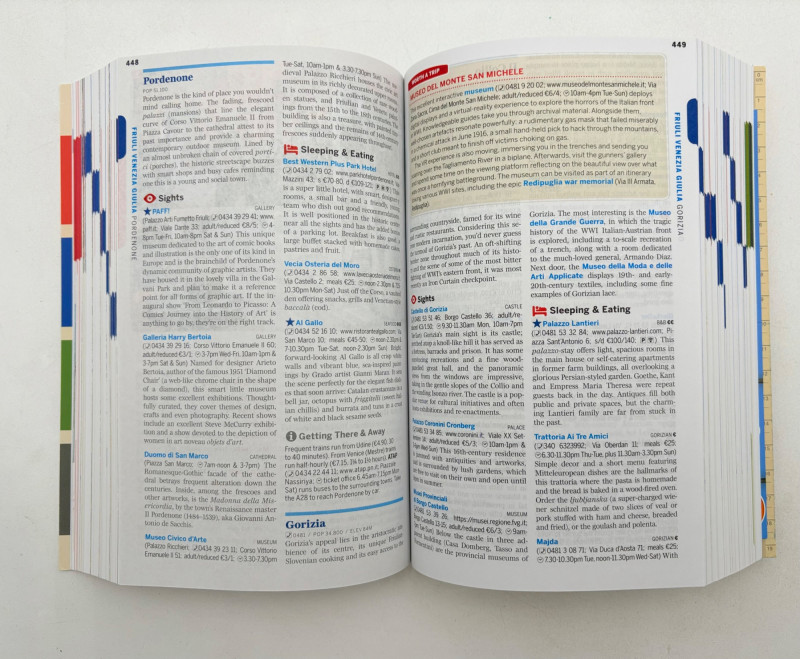 448
Pordenone
POP 51,100
Pordenone is the kind of place you wouldn't
mind calling home. The fading, frescoed
palazzi (mansions) that line the elegant
curve of Corso Vittorio Emanuele II from
Piazza Cavour to the cathedral attest to its
past importance and provide a charming
contemporary outdoor museum. Lined by
an almost unbroken chain of covered porti-
ci (porches), the historic streetscape buzzes
with smart shops and busy cafes reminding
one this is a young and social town.
Sights
PAFF! GALLERY
(Palazzo Arti Fumetto Friuli; 0434 39 29 41; www.
paff.it; Viale Dante 33; adult/reduced €8/5; 4-
8pm Tue-Fri, 10am-8pm Sat & Sun) This unique
museum dedicated to the art of comic books
and illustration is the only one of its kind in
Europe and is the brainchild of Pordenone's
dynamic community of graphic artists. They
have housed it in the lovely villa in the Gal-
vani Park and plan to make it a reference
point for all forms of graphic art. If the in-
augural show 'From Leonardo to Picasso: A
Comics' Journey into the History of Art' is
anything to go by, they're on the right track.
Galleria Harry Bertoia GALLERY
(0434 39 29 16; Corso Vittorio Emanuele II 60;
adult/reduced €3/1; 3-7pm Wed-Fri, 10am-1pm &
3-7pm Sat & Sun) Named for designer Arieto
Bertoia, author of the famous 1951 'Diamond
Chair' (a web-like chrome chair in the shape
of a diamond), this smart little museum
hosts some excellent exhibitions. Thought-
fully curated, they cover themes of design,
crafts and even photography. Recent shows
include an excellent Steve McCurry exhibi-
tion and a show devoted to the depiction of
women in art noveau objets d'art.
Duomo di San Marco CATHEDRAL
(Piazza San Marco; 7am-noon & 3-7pm) The
Romanesque-Gothic facade of the cathe-
dral betrays frequent alteration down the
centuries. Inside, among the frescoes and
other artworks, is the Madonna della Mis-
ericordia, by the town's Renaissance master
Il Pordenone (1484–1539), aka Giovanni An-
tonio de Sacchis.
Museo Civico d'Arte MUSEUM
(Palazzo Ricchieri; 0434 39 23 11; Corso Vittorio
Emanuele II 51; adult/reduced €3/1; 3.30-7.30pm
FRIULI VENEZIA GIULIA PORDENONE
Tue-Sat, 10am-1pm & 3.30-7.30pm Sun) The me-
dieval Palazzo Ricchieri houses the civic
museum in its richly decorated
It is composed of a collection of
en statues, and Friulian and Veneto paint-
ings from the 15th to the 18th centuries. The
building is also a treasure, with painted tim-
ber ceilings and the remains of
frescoes suddenly appearing throughout.
Sleeping & Eating
Best Western Plus Park Hotel
(0434 2 79 02; www.parkhotelpordenone.it; Via
Mazzini 43; s €70-80, d €109-121;) This
is a super little hotel, with smart, designer
rooms, a small bar and a friendly
team who dish out good recommendations.
It is well positioned in the historic centre
near all the sights and has the added bonus
of a parking lot. Breakfast is also a
large buffet stacked with homemade cakes,
pastries and fruit.
Vecia Osteria del Moro
(0434 2 86 58; www.laveciaosteriadelmoro.it;
Via Castello 2; meals €25; noon-2.30pm &
10.30pm Mon-Sat) Just off the Corso, a vaulted
den offering snacks, grills and Venetian
baccalà (cod).
Al Gallo
(0434 52 16 10; www.ristorantealgallo.com;
San Marco 10; meals €45-50; noon-2.30pm &
7-10.30pm Tue-Sat, noon-2.30pm Sun) Bright,
forward-looking Al Gallo is all crisp white
walls and vibrant blue, sea-inspired paint-
ings by Grado artist Gianni Maran. It sets
the scene perfectly for the elegant fish dish-
es that soon arrive: Catalan crustaceans in a
bell jar, octopus with friggitelli (sweet Ital-
ian chillies) and burrata and tuna in a crust
of white and black sesame seeds.
Getting There & Away
Frequent trains run from Udine (€4.90, 30
to 40 minutes). From Venice (Mestre) trains
run half-hourly (€7.15, 1¼ to 1½ hours). ATAP
(0434 22 44 11; www.atap.pn.it; Piazzale
Nassiriya; ticket office 6.45am-7.15pm Mon-
Sat) runs buses to the surrounding towns. Take
the A28 to reach Pordenone by car.
Gorizia
0481 / POP 34,800 / ELEV 84M
Gorizia's appeal lies in the aristocratic am-
bience of its centre, its unique Friulian-
Slovenian cooking and its easy access to the
449
WORTH A TRIP
MUSEO DEL MONTE SAN MICHELE
excellent interactive museum (0481 9 20 02; www.museodelmontesanmichele.it; Via
Zona Sacra, Cima del Monte San Michele; adult/reduced €6/4; 10am-4pm Tue-Sun) deploys
and a virtual-reality experience to explore the horrors of the Italian front
Knowledgeable guides take you through archival material. Alongside them,
some artefacts resonate powerfully: a rudimentary gas mask that failed miserably
attack in June 1916, a small hand-held pick to hack through the mountains,
meant to finish off victims choking on gas.
The VR experience is also moving, immersing you in the trenches and sending you
flying over the Tagliamento River in a biplane. Afterwards, visit the gunners' gallery
and spend some time on the viewing platform reflecting on the beautiful view over what
was once a horrifying battleground. The museum can be visited as part of an itinerary
taking various WWI sites, including the epic Redipuglia war memorial (Via III Armata,
Redipuglia).
surrounding countryside, famed for its wine
and restaurants. Considering this se-
rene modern incarnation, you'd never guess
the turmoil of Gorizia's past. An oft-shifting
border zone throughout much of its histo-
ry and the scene of some of the most bitter
fighting of WWI's eastern front, it was most
recently an Iron Curtain checkpoint.
Sights
Castello di Gorizia CASTLE
(0481 53 51 46; Borgo Castello 36; adult/re-
duced €3/1.50; 9.30-11.30am Mon, 10am-7pm
Tue-Sun) Gorizia's main sight is its castle;
perched atop a knoll-like hill it has served as
a fortress, barracks and prison. It has some
convincing recreations and a fine wood-
panelled great hall, and the panoramic
views from the windows are impressive,
taking in the gentle slopes of the Collio and
the winding Isonzo river. The castle is a pop-
ular venue for cultural initiatives and often
hosts exhibitions and re-enactments.
Palazzo Coronini Cronberg PALACE
(0481 53 34 85; www.coronini.it; Viale XX Set-
tembre 14; adult/reduced €5/3; 10am-1pm &
) This 16th-century residence
is jammed with antiquities and artworks,
and is surrounded by lush gardens, which
are free to visit on their own and open until
9pm in summer.
Musei Provinciali
di Borgo Castello MUSEUM
(0481 53 39 26; https://musei.regione.fvg.it;
Borgo Castello 13-15; adult/reduced €6/3; 9am-
7pm Tue-Sun) Below the castle in three ad-
jacent building (Casa Dornberg, Tasso and
Formentini) are the provincial museums of
Gorizia. The most interesting is the Museo
della Grande Guerra, in which the tragic
history of the WWI Italian-Austrian front
is explored, including a to-scale recreation
of a trench, along with a room dedicated
to the much-loved general, Armando Diaz.
Next door, the Museo della Moda e delle
Arti Applicate displays 19th- and early-
20th-century textiles, including some fine
examples of Gorizian lace.
Sleeping & Eating
Palazzo Lantieri B&B €€
(0481 53 32 84; www.palazzo-lantieri.com; Pi-
azza Sant'Antonio 6; s/d €100/140;) This
palazzo-stay offers light, spacious rooms in
the main house or self-catering apartments
in former farm buildings, all overlooking a
glorious Persian-styled garden. Goethe, Kant
and Empress Maria Theresa were repeat
guests back in the day. Antiques fill both
public and private spaces, but the charm-
ing Lantieri family are far from stuck in
the past.
Trattoria Ai Tre Amici GORIZIAN €
(340 6323992; Via Oberdan 11; meals €25;
6.30-11.30pm Thu-Tue, plus 11.30am-3.30pm Sun)
Simple decor and a short menu featuring
Mitteleuropean dishes are the hallmarks of
this trattoria where the pasta is homemade
and the bread is baked in a wood-fired oven.
Order the (ljub)janska (a super-charged wie-
ner schnitzel made of two slices of veal or
pork stuffed with ham and cheese, breaded
and fried), or the goulash and polenta.
Majda GORIZIAN €
(0481 3 08 71; Via Duca d'Aosta 71; meals €25;
7.30-10.30pm Tue, noon-11.30pm Wed-Sat) With
FRIULI VENEZIA GIULIA GORIZIA